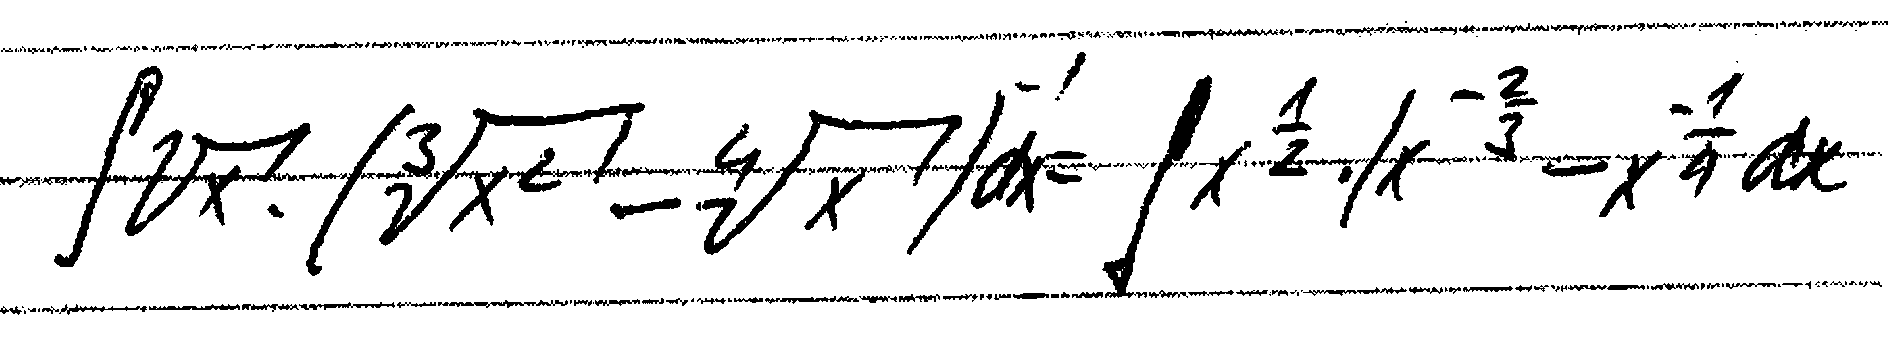 ∫√x · (∛x² − ∜x)⁻¹ dx = ∫ x^{1/2} · (x^{-2/3} − x^{-1/4} dx